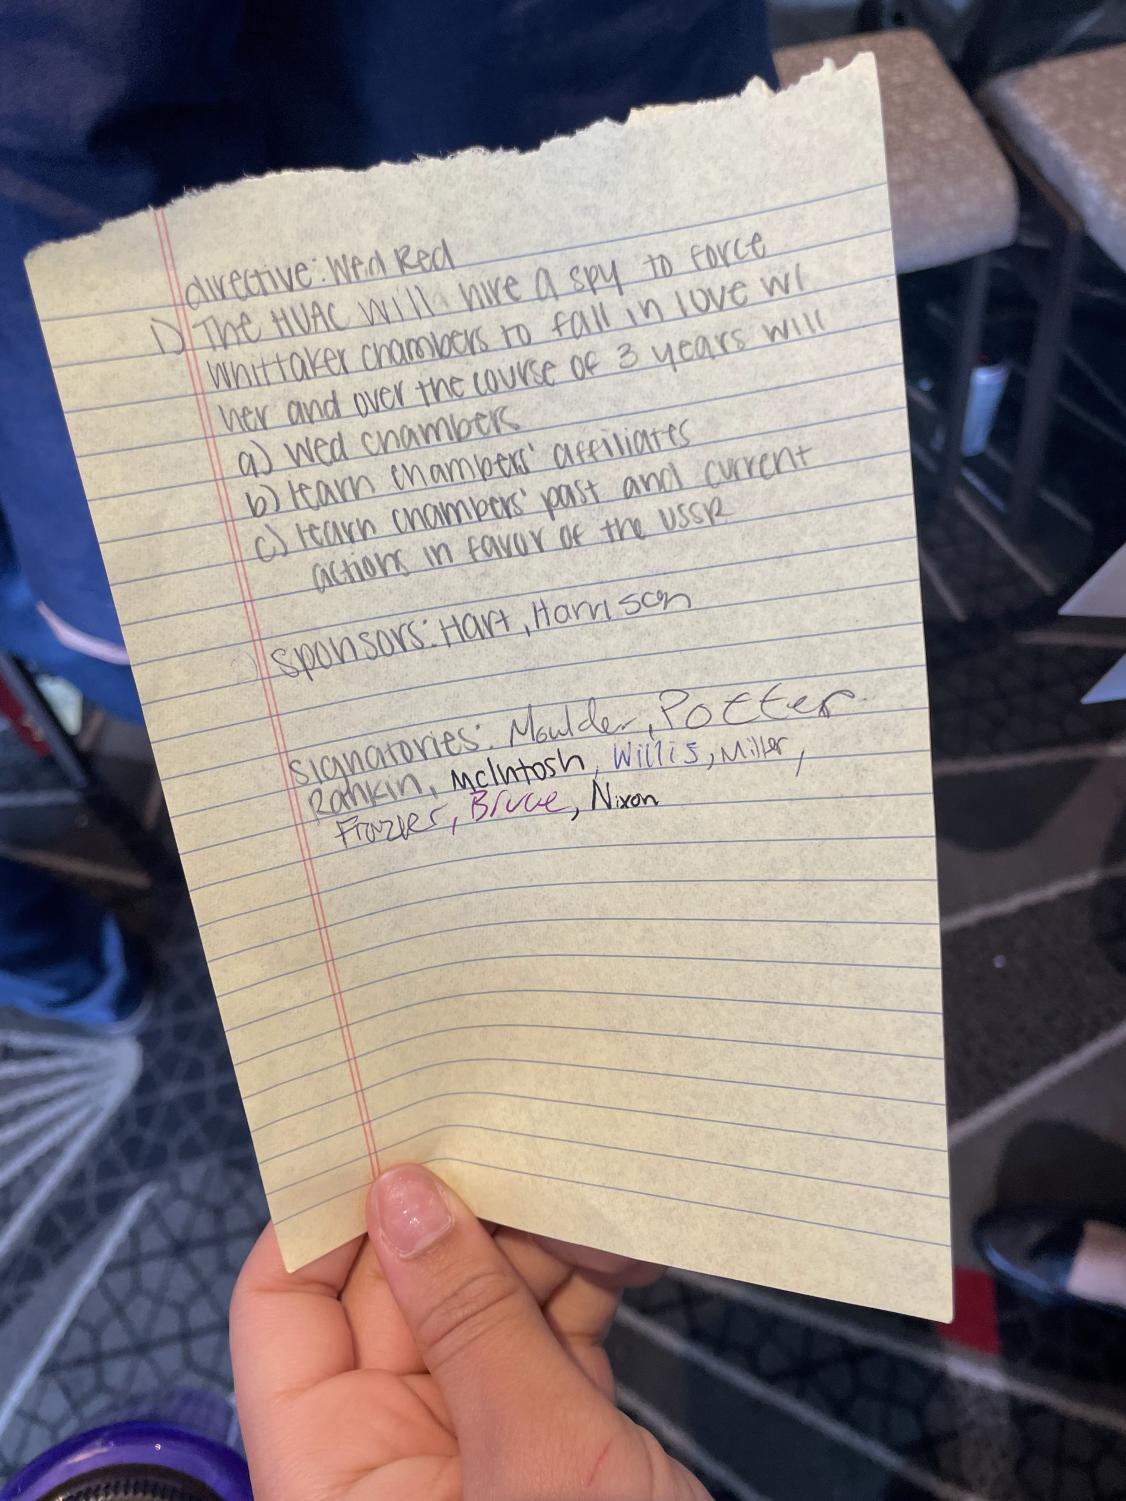 directive: Wed Red
1) The HUAC will hire a spy to force
Whittaker chambers to fall in love w/
her and over the course of 3 years will
a) wed chambers
b) learn chambers' affiliates
c) learn chambers' past and current
actions in favor of the USSR
sponsors: Hart, Harrison
signatories: Moulder, Potter
Rankin, McIntosh, Willis, Miller,
Frazier, Bruce, Nixon